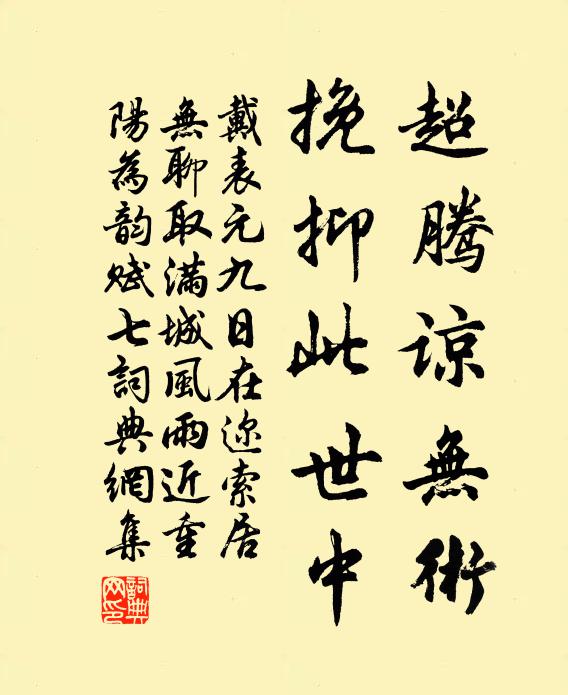 超騰諒無術
挽抑此世中
戴表元九日在迩索居
無聊取滿城風雨近重
陽為韵赋七詞典網集
詞典
网印